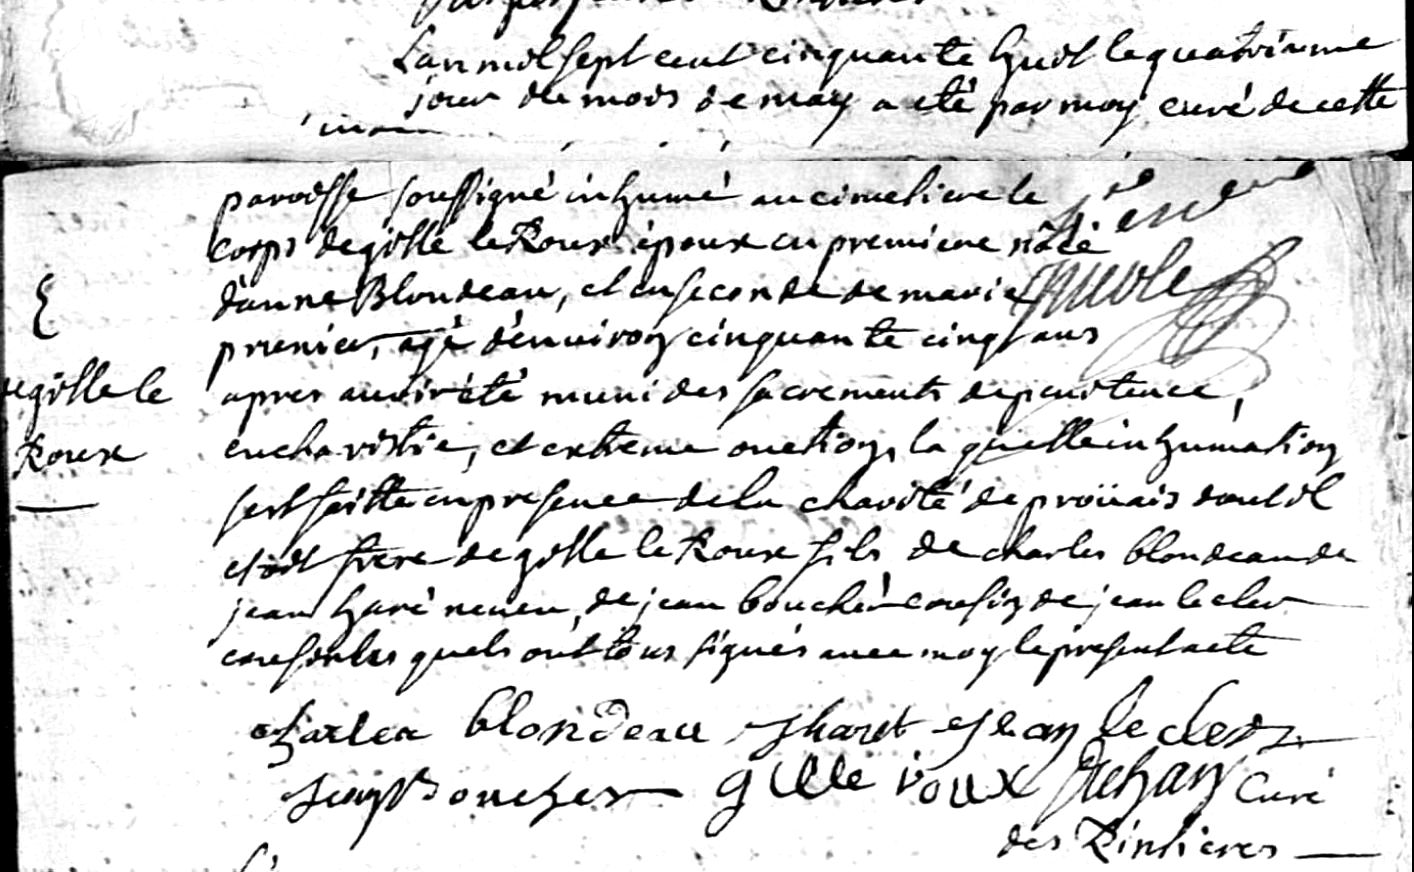 L'an mil sept cent cinquante huit le quatrieme
jour du mois de may a eté par moy curé de cette
paroisse soussigné inhumé au cimetiere le
corps de gille le Roux époux en premiere nôce
d'anne Blondeau, et en seconde de marie
prenier, agé d'environ cinquante cinq ans
apres avoir été muni des sacrements de penitence,
eucharistie, et extreme onction, la quelle inhumation
s'est faitte en presence de la charité de proüais dont il
etoit frere de gille le Roux fils de charles blondeau de
jean havé neveu, de jean boucher cousin de jean le cler
cousin les quels ont tous signés avec moy le present acte
de gille le
Roux
charles blondeau jean le clerc
jean Boucher gille roux Curé
des Pinthieres